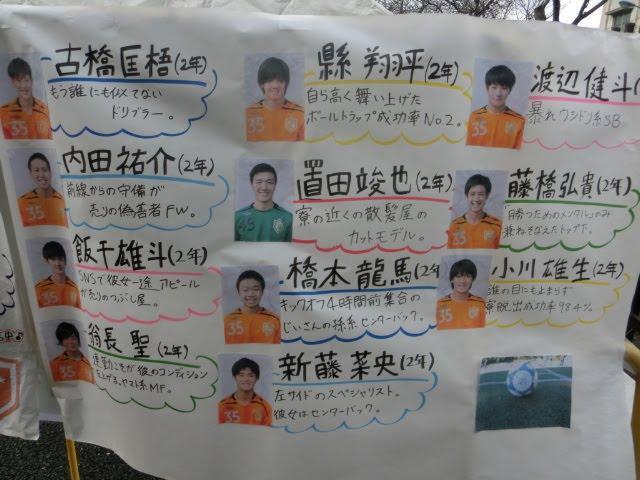 古橋匡梧(2年)
もう誰にも似てない
ドリブラー。
縣 翔平(2年)
自ら高く舞い上げた
ボールトラップ成功率No.2。
渡辺健斗
暴れワシドリ系SB
内田祐介(2年)
前線からの守備が
売りの偽善者FW。
置田竣也(2年)
寮の近くの散髪屋の
カットモデル。
藤橋弘貴(2年)
「勝つためのメンタル」のみ
兼ねそなえたトップ下。
飯干雄斗(2年)
SNSで彼女一途アピール
が売りのつぶし屋。
橋本龍馬(2年
キックオフ4時間前集合の
じいさんの孫系センターバック。
小川雄生(2年)
誰の目にもとまらず
寮脱出成功率98.4%。
翁長聖(2年)
彼のコンディション
を上げる。サスト系MF。
新藤菜央(2年)
左サイドのスペシャリスト。
彼女はセンターバック。
35
35
35
35
45
35
35
35
35
35